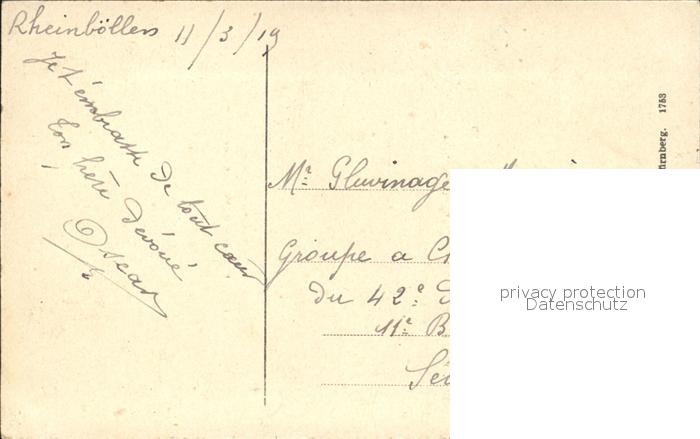 Rheinböllen 11/3/19
Je t'embrasse de tout coeur
Ton frère dévoué
Oscar
Mr Gluvinage
Groupe a
du 42e
11e B
rnberg. 1753
privacy protection
Datenschutz